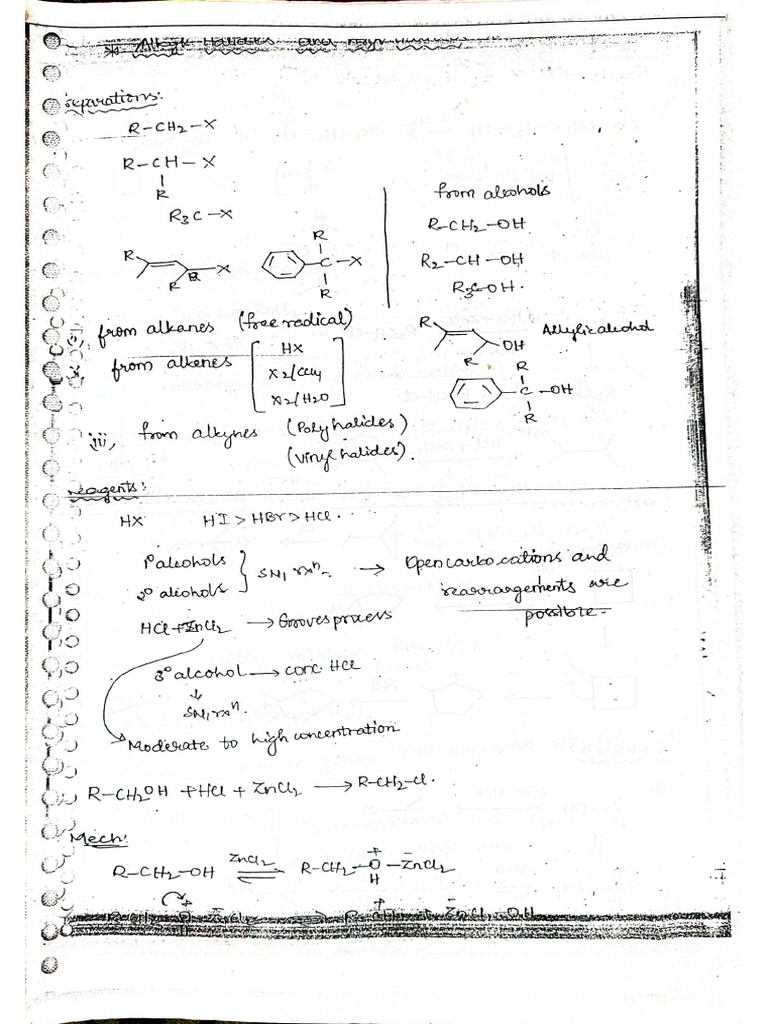 * Alkyl Halides and Aryl Halides
Preparations:
R-CH2-X
R-CH-X
R
R3C-X
R
X
R
R
C-X
R
from alcohols
R-CH2-OH
R2-CH-OH
R3-C-OH.
R
OH
R
Allylic alcohol
R
C-OH
R
from alkanes (free radical)
from alkenes [HX
X2/CCl4
X2/H2O]
iii, from alkynes (Polyhalides)
(Vinyl halides).
Reagents:
HX HI > HBr > HCl.
1° alcohols
2° alcohols } SN1 rxn. → Open carbocations and
rearrangements are
possible.
HCl + ZnCl2 → Grooves process
3° alcohol → conc HCl
↓
SN1 rxn.
Moderate to high concentration
R-CH2OH + HCl + ZnCl2 → R-CH2-Cl.
Mech:
R-CH2-OH ⇌ ZnCl2 R-CH2-O+-Z̄nCl2
H